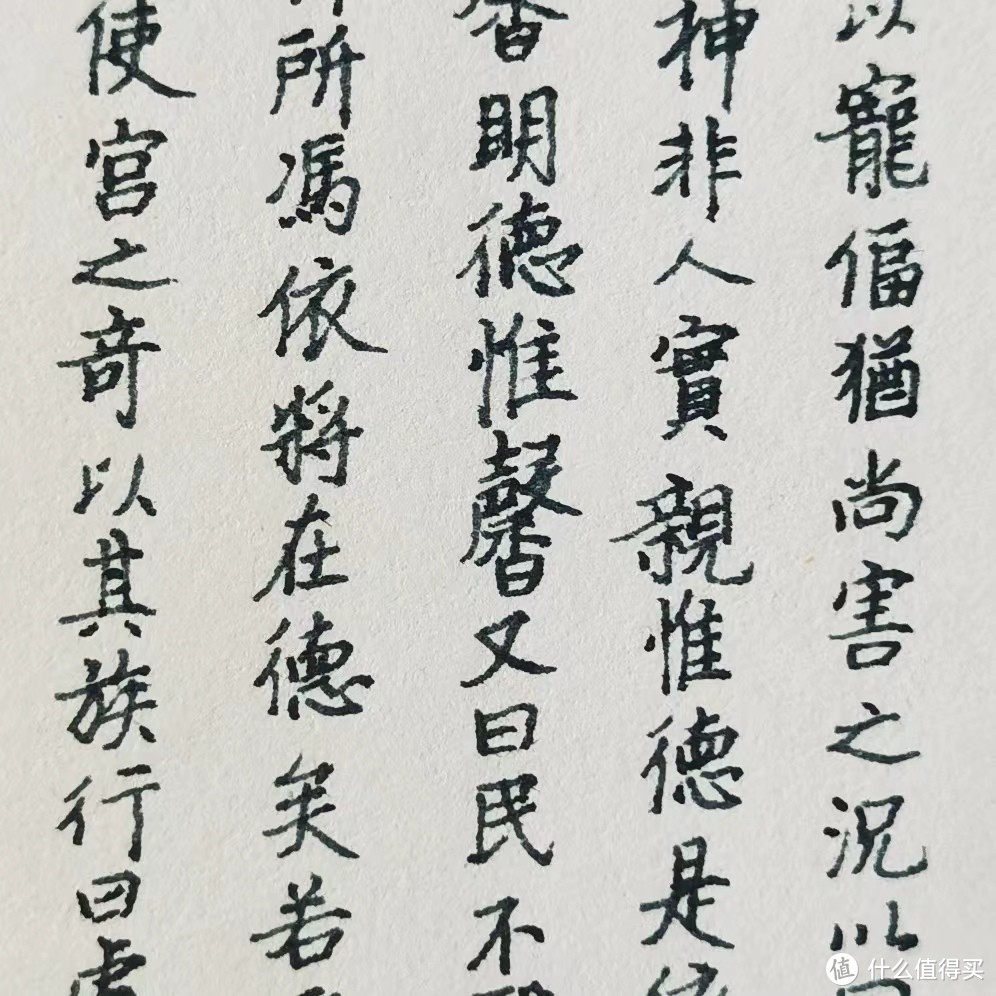 以寵偪猶尚害之況以
神非人實親惟德是
香明德惟馨又曰民不
所馮依將在德矣若
使宮之奇以其族行曰虞
值 什么值得买